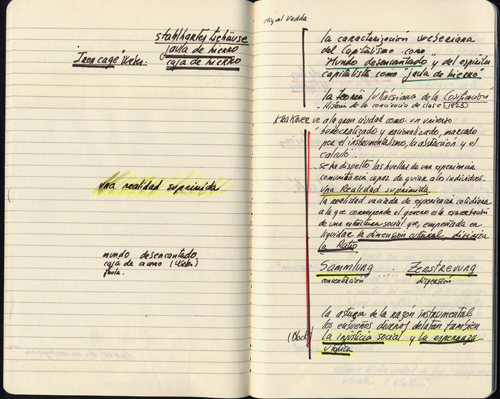 stahlhartes Gehäuse
jaula de hierro
"Iron cage" Weber. caja de hierro
una realidad suprimida
mundo desencantado
caja de acero (Weber)
jaula.
Miguel Vedda
la caracterización weberiana
del Capitalismo como
"Mundo desencantado" y del espíritu
capitalista como "jaula de hierro"
la teoría lukácsiana de la Cosificación
Historia de la conciencia de clase (1923)
Kracauer ve a la gran ciudad como un universo
burocratizado y racionalizado, marcado
por el instrumentalismo, la abstracción y el
cálculo..
se ha disuelto, las huellas de una experiencia
comunitaria capaz de guiar a los individuos.
Una Realidad suprimida
la realidad vaciada de experiencia cotidiana
a la que corresponde el
de una estructura social que, empeñada en
liquidar la dimensión cultural,
la Ratio
Sammlung Zerstreuung
concentración dispersión
la astucia de la razón instrumental
los ensueños diurnos delatan también
(Bloch) la injusticia social y la esperanza
utópica